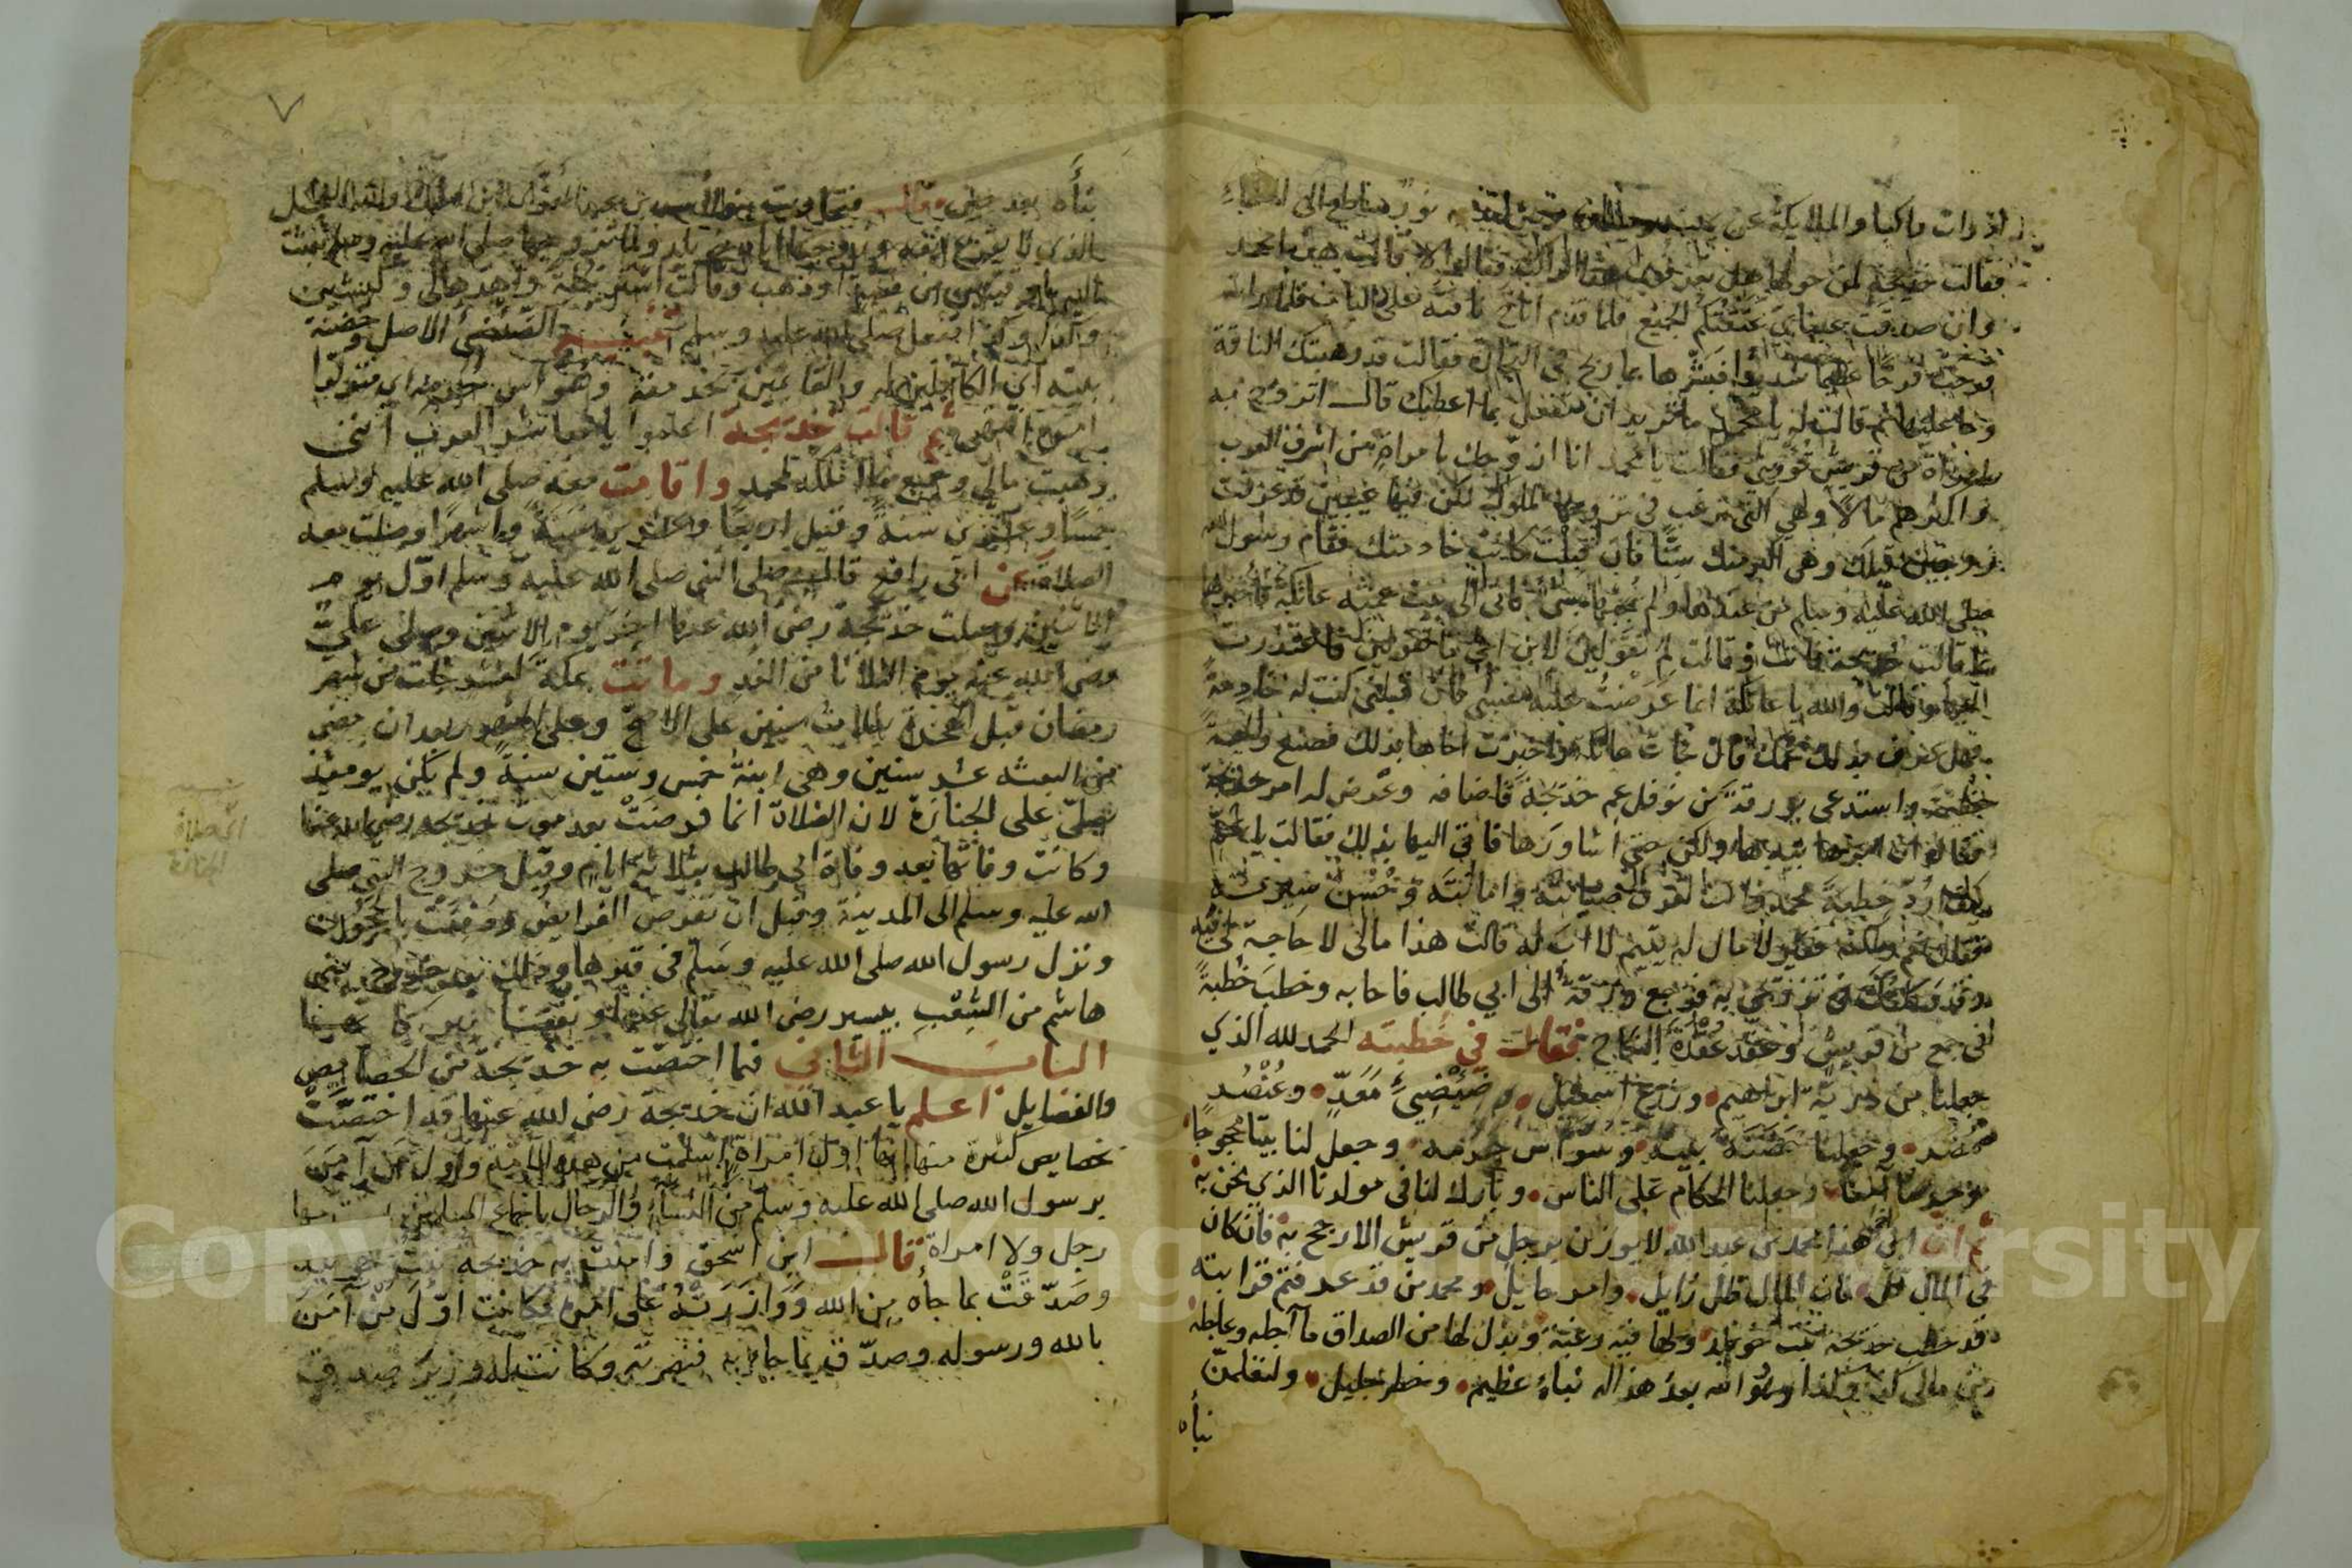 اذ رات راكبا والملايكة عن يمينه نور ساطع الى السماء
فقالت خديجة لمن حولها هل تعرفون هذا الراكب فقالوا لا قالت هذا محمد
وان صدقت عيناي عتقتكم الجميع فلما قدم اناخ ناقته على الباب فلما راته
فرحت فرحًا عظيما شديدا فبشرها بما ربح في التجارة فقالت قد وهبتك الناقة
وما عليها ثم قالت له يا محمد ما تريد ان تفعل بما اعطيك قال اتزوج به
امراة من قريش فقالت يا محمد انا ازوّجك بامراةٍ من اشرف العرب
واكثرهم مالًا وهي التي ترغب في تزويجها الملوك لكن فيها عيبين قد عرفت
زوجين قبلك وهي اكبر منك سنًّا فان قبلت كانت خادمتك فقام رسول الله
صلى الله عليه وسلم من عندها ولم يجبها بشئ فاتى الى بيت عمته عاتكة فاخبرها
بما قالت خديجة فاتت وقالت لم تقولين لابن اخي ما تقولين فاعتذرت
اليها وقالت والله يا عاتكة انما عرضت عليه نفسي فان قبلني كنت له خادمةً
فهل عرف بذلك عمك قال فاتت عاتكة فاخبرت اخاها بذلك فصنع وليمةً
عظيمة واستدعى بورقة بن نوفل عم خديجة فاضافه وعرّض له امر خديجة
فقال ان امرها بيدها ولكن حتى اشاورها فاتى اليها بذلك فقالت يا عم
كيف اردّ خطبةَ محمد وانت تعرف صيانته وامانته وحُسن سيرته
فقال نعم ولكنه فقير لا مال له يتيم لا اب له قالت هذا مالى لا حاجة لى فيه
وقد وكلتك ان تزوجني به فرجع ورقة الى ابي طالب فاجابه وخطب خُطبةً
في جمع من قريش وعقد عُقدة النكاح فقال في خطبته الحمد لله الذي
جعلنا من ذرية ابراهيم وزرع اسمعيل وضِئضِئ مَعَدّ وعُنْصُر
مُضَر وجعلنا حَضَنَةَ بيته وسُوّاس حرمه وجعل لنا بيتًا محجوجًا
وحرمًا آمنا وجعلنا الحكام على الناس وبارك لنا في مولدنا الذي نحن به
ثم ان ابن اخي هذا محمد بن عبد الله لا يوزن برجل من قريش الا رجح به فان كان
في المال قل فان المال ظل زايل وامر حايل ومحمد من قد عرفتم قرابته
قد خطب خديجة بنت خويلد ولها فيه رغبة وبذل لها من الصداق ما آجله وعاجله
من مالى كذا وكذا وهو والله بعد هذا له نباء عظيم وخطر جليل ولتعلمنّ
نبأه
٧
نبأه بعد حين قال
الذي لا يقرع انفه وزوجها اياه ولما تزوجها صلى الله عليه وسلم بعثت
اليه باوقيتين من فضة او ذهب وقالت اشتر حُلّة واهدها لى وكبشين
وكذا وكذا ففعل صلى الله عليه وسلم تنبيه الضِئضِئ الاصل وحَضَنة
بيته اي الكافلين له والقايمين بخدمته وسُوّاس حرمه اي متولوا
اموره ثم قالت خديجة اعلموا يا معاشر العرب انني
وهبت مالي وجميع ما املكه لمحمد واقامت معه صلى الله عليه وسلم
خمسًا وعشرين سنة وقيل اربعًا وعشرين سنةً واشهرًا وصلت معه
الصلاة عن ابي رافع قال صلى النبي صلى الله عليه وسلم اوّل يوم
الاثنين وصلت خديجة رضي الله عنها اخر يوم الاثنين وصلى عليّ
رضي الله عنه يوم الثلاثا من الغد وماتت بمكة لعشر خلت من شهر
رمضان قبل الهجرة بثلاث سنين على الاصح وعلى الصحيح بعد ان مضى
من البعثه عشر سنين وهي ابنةُ خمس وستين سنةً ولم يكن يومئذ
يصلّى على الجنازة لان الصلاة انما فرضتْ بعد موت خديجة رضي الله عنها
وكانت وفاتها بعد وفاة ابي طالب بثلاثة ايام وقبل خروج النبي صلى
الله عليه وسلم الى المدينة وقبل ان تفرض الفرايض ودفنت بالحَجُون
ونزل رسول الله صلى الله عليه وسلم في قبرها وذلك بعد خروج بني
هاشم من الشِعْبِ بيسير رضي الله تعالى عنها ونفعنا ببركاتها
الباب الثاني فيما اختصّت به خديجة من الخصايص
والفضايل اعلم يا عبد الله ان خديجة رضي الله عنها قد اختصّتْ
بخصايص كثيرة منها انها اول امراة اسلمت من هذه الامة واول من آمنَ
برسول الله صلى الله عليه وسلم من النساء والرجال باجماع المسلمين
رجل ولا امراة قال ابن اسحق وامنت به خديجة بنت خويلد
وصَدّقَتْ بما جاه من الله ووازَرَتْهُ على امره فكانت اوّل من آمَنَ
بالله ورسوله وصدّق بما جاء به فنصرته وكانت له وزير صدق